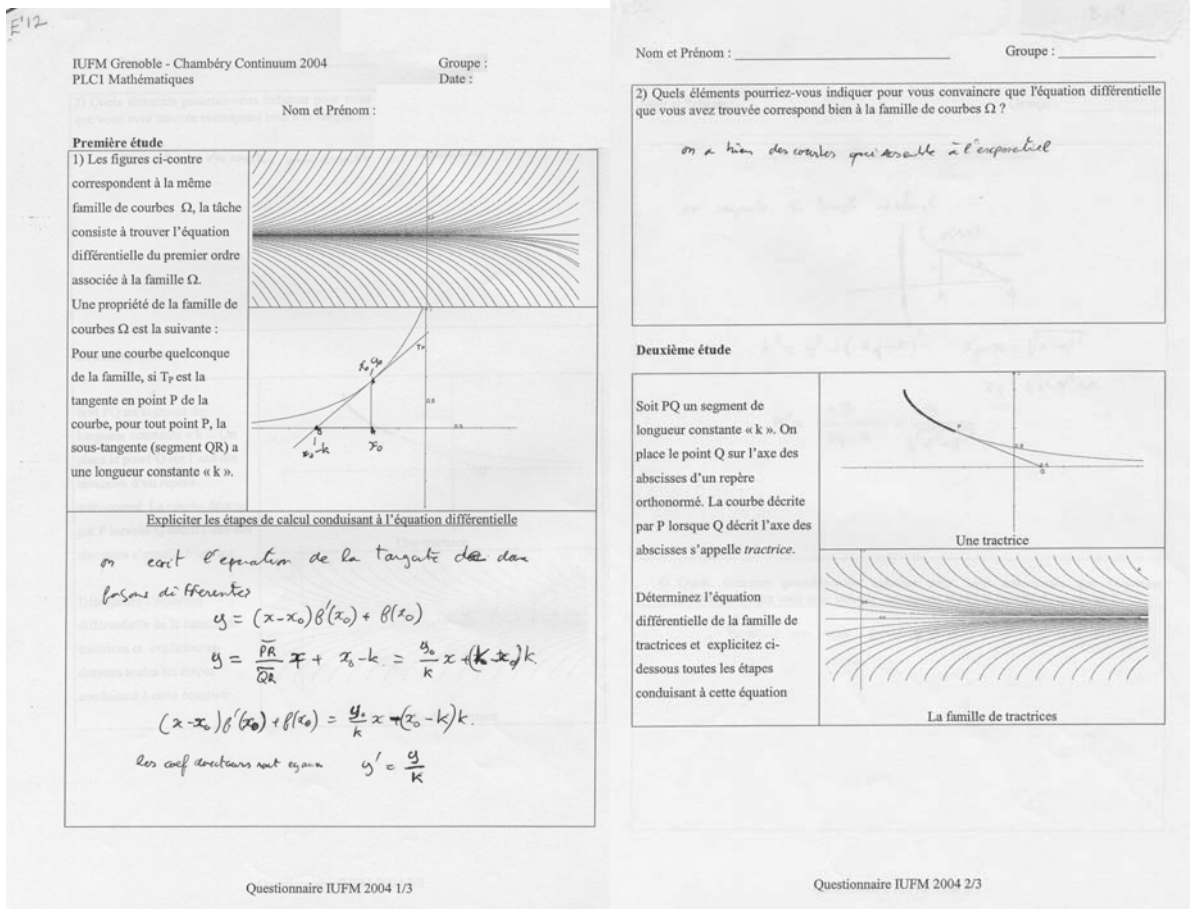 E'12
IUFM Grenoble - Chambéry Continuum 2004
Groupe :
PLC1 Mathématiques
Date :
Nom et Prénom :
Première étude
1) Les figures ci-contre
correspondent à la même
famille de courbes Ω, la tâche
consiste à trouver l'équation
différentielle du premier ordre
associée à la famille Ω.
Une propriété de la famille de
courbes Ω est la suivante :
Pour une courbe quelconque
de la famille, si TP est la
tangente en point P de la
courbe, pour tout point P, la
sous-tangente (segment QR) a
une longueur constante « k ».
TP
0.5
x₀-k
x₀
Expliciter les étapes de calcul conduisant à l'équation différentielle
on ecrit l'equation de la tangate de dan
façons differentes
y = (x-x₀)f'(x₀) + f(x₀)
y = PR/QR x + x₀-k = y₀/k x +(k-x₀)k.
(x-x₀)f'(x₀)+f(x₀) = y₀/k x +(x₀-k)k.
les coef directeurs sont egaux y' = y/k
Questionnaire IUFM 2004 1/3
Nom et Prénom :
Groupe :
2) Quels éléments pourriez-vous indiquer pour vous convaincre que l'équation différentielle
que vous avez trouvée correspond bien à la famille de courbes Ω ?
on a bien des courbes qui ressemble à l'exponentiel
Deuxième étude
Soit PQ un segment de
longueur constante « k ». On
place le point Q sur l'axe des
abscisses d'un repère
orthonormé. La courbe décrite
par P lorsque Q décrit l'axe des
abscisses s'appelle tractrice.
P
Q
Une tractrice
Déterminez l'équation
différentielle de la famille de
tractrices et explicitez ci-
dessous toutes les étapes
conduisant à cette équation
La famille de tractrices
Questionnaire IUFM 2004 2/3